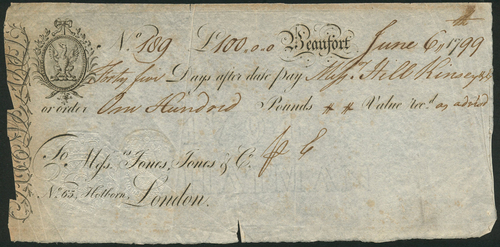 No. 389 £100.0.0 Beaufort June 6 1799
Forty five Days after date pay Messrs. Hill
or order One Hundred Pounds # # Value rec.d as advised
To Mess.rs Jones, Jones & C.
No. 65, Holborn, London.